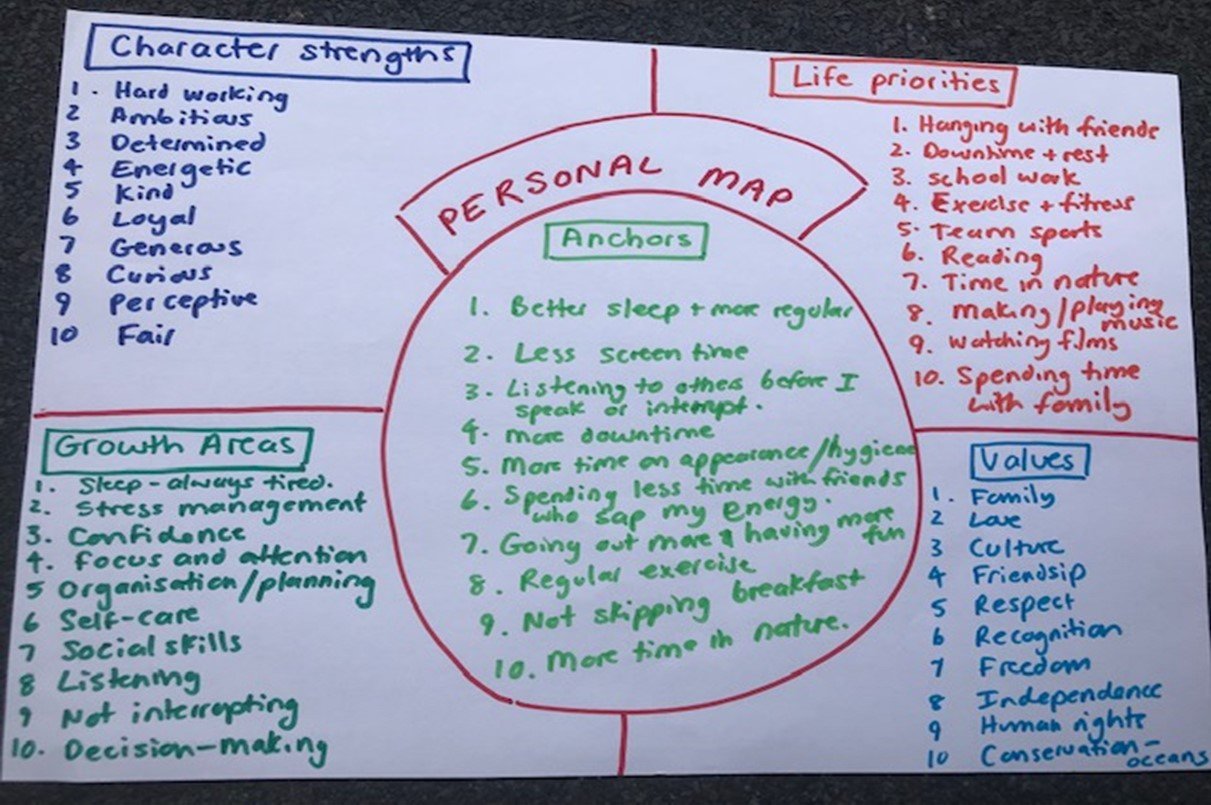 Character strengths
1. Hard working
2 Ambitious
3 Determined
4 Energetic
5 Kind
6 Loyal
7 Generous
8 Curious
9 Perceptive
10 Fair
PERSONAL MAP
Life priorities
1. Hanging with friends
2. Downtime + rest
3. school work
4. Exercise + fitness
5. Team sports
6. Reading
7. Time in nature
8. Making/playing
music
9. Watching films
10. Spending time
with family
Anchors
1. Better sleep + more regular
2. Less screen time
3. Listening to others before I
speak or interrupt.
4. more downtime
5. More time on appearance/hygiene
6. Spending less time with friends
who sap my energy.
7. Going out more & having more
fun
8. Regular exercise
9. Not skipping breakfast
10. More time in nature.
Growth Areas
1. Sleep - always tired.
2. Stress management
3. Confidence
4. Focus and attention
5 Organisation/planning
6 Self-care
7 Social skills
8 Listening
9 Not interrupting
10. Decision-making
Values
1. Family
2 Love
3 Culture
4 Friendsip
5 Respect
6 Recognition
7 Freedom
8 Independence
9 Human rights
10 Conservation-
oceans